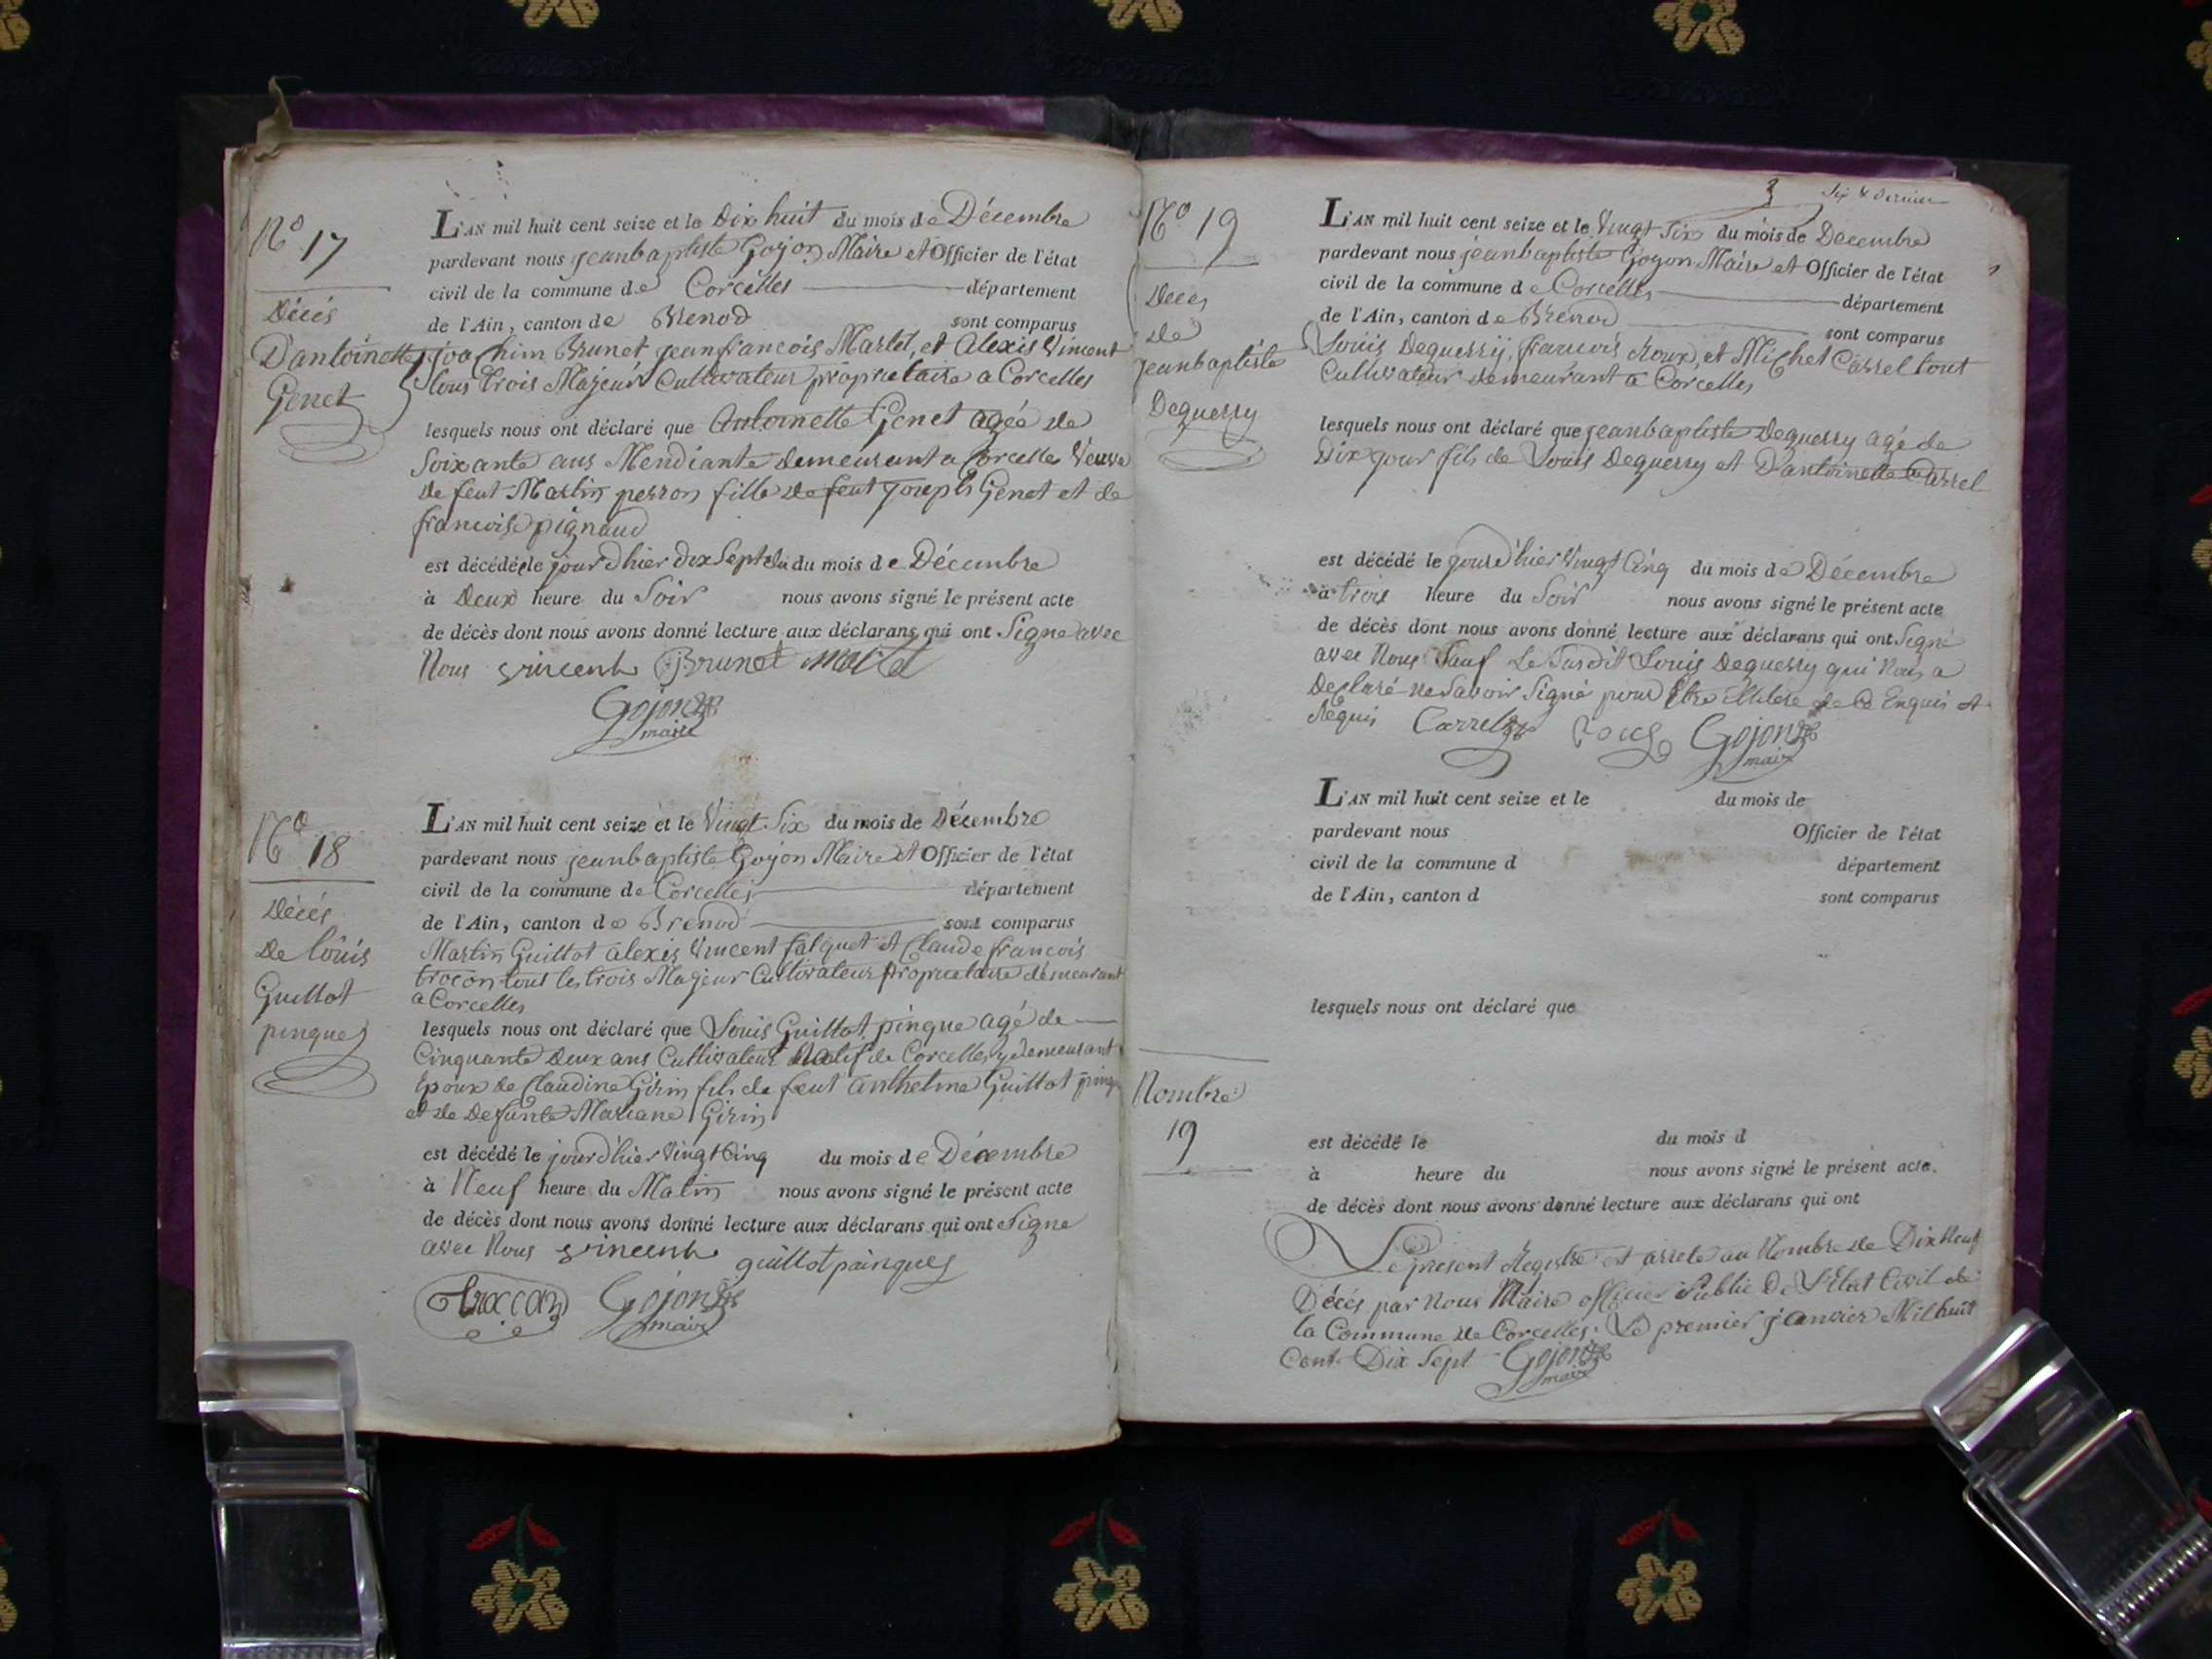 N.o 17
Décés
D'antoinette
Genet
L'AN mil huit cent seize et le Dix huit du mois de Décembre
pardevant nous jeanbaptiste Gojon Maire et Officier de l'état
civil de la commune de Corcelles département
de l'Ain, canton de Brenod sont comparus
joachim Brunet jeanfrancois Martel, et Alexis Vincent
tous trois Majeur Cultivateur propriétaire a Corcelles
lesquels nous ont déclaré que Antoinette Genet agée de
Soixante ans Mendiante demeurant a Corcelles Veuve
de feut Martin perron fille de feut joseph Genet et de
francoise pignaud
est décédée le jour d'hier dix Sept du du mois de Décembre
à Deux heure du Soir nous avons signé le présent acte
de décès dont nous avons donné lecture aux déclarans qui ont Signe avec
Nous vincent Brunet
Gojon
maire
N.o 18
Décés
De loûis
Guillot
pingues
L'AN mil huit cent seize et le Vingt Six du mois de Décembre
pardevant nous jeanbaptiste Gojon Maire et Officier de l'état
civil de la commune de Corcelles département
de l'Ain, canton de Brenod sont comparus
Martin Guillot alexis Vincent falquet et Claude francois
trocon tout les trois Majeur Cultivateur propriétaire demeurant
a Corcelles
lesquels nous ont déclaré que Louis Guillot pingue agé de
Cinquante deux ans Cultivateur Natif de Corcelles y demeurant
Epoux de Claudine Girin fils de feut anthelme Guillot
et de Defunte Mariane Girin
est décédé le jour d'hier Vingt Cinq du mois de Décembre
à Neuf heure du Matin nous avons signé le présent acte
de décès dont nous avons donné lecture aux déclarans qui ont Signe
avec Nous vincent guillot painques
trocon Gojon
maire
3 Six & dernier
N.o 19
Deces
de
jeanbaptiste
Deguerry
L'AN mil huit cent seize et le Vingt Six du mois de Decembre
pardevant nous jeanbaptiste Gojon Maire et Officier de l'état
civil de la commune de Corcelles département
de l'Ain, canton de Brénod sont comparus
Louis Deguerry, francois Roux, et Michel Carrel tout
Cultivateur demeurant a Corcelles
lesquels nous ont déclaré que jeanbaptiste Deguerry agé de
Dix jour fils de Louis Deguerry et D'antoinette Carrel
est décédé le jour d'hier Vingt Cinq du mois de Décembre
à trois heure du Soir nous avons signé le présent acte
de décès dont nous avons donné lecture aux déclarans qui ont Signé
avec Nous Sauf Le Susdit Louis Deguerry qui Nous a
Declaré ne Savoir Signé pour Etre de ce Enquis et
Requis Carrel Roux Gojon
maire
L'AN mil huit cent seize et le du mois de
pardevant nous Officier de l'état
civil de la commune d département
de l'Ain, canton d sont comparus
lesquels nous ont déclaré que
Nombre
19
est décédé le du mois d
à heure du nous avons signé le présent acte.
de décès dont nous avons donné lecture aux déclarans qui ont
Le present Registre est arrete au Nombre de Dix Neuf
Décés par Nous Maire officier Public De L'Etat Civil de
la Commune de Corcelles. Le premier janvier Mil huit
Cent Dix Sept Gojon
maire